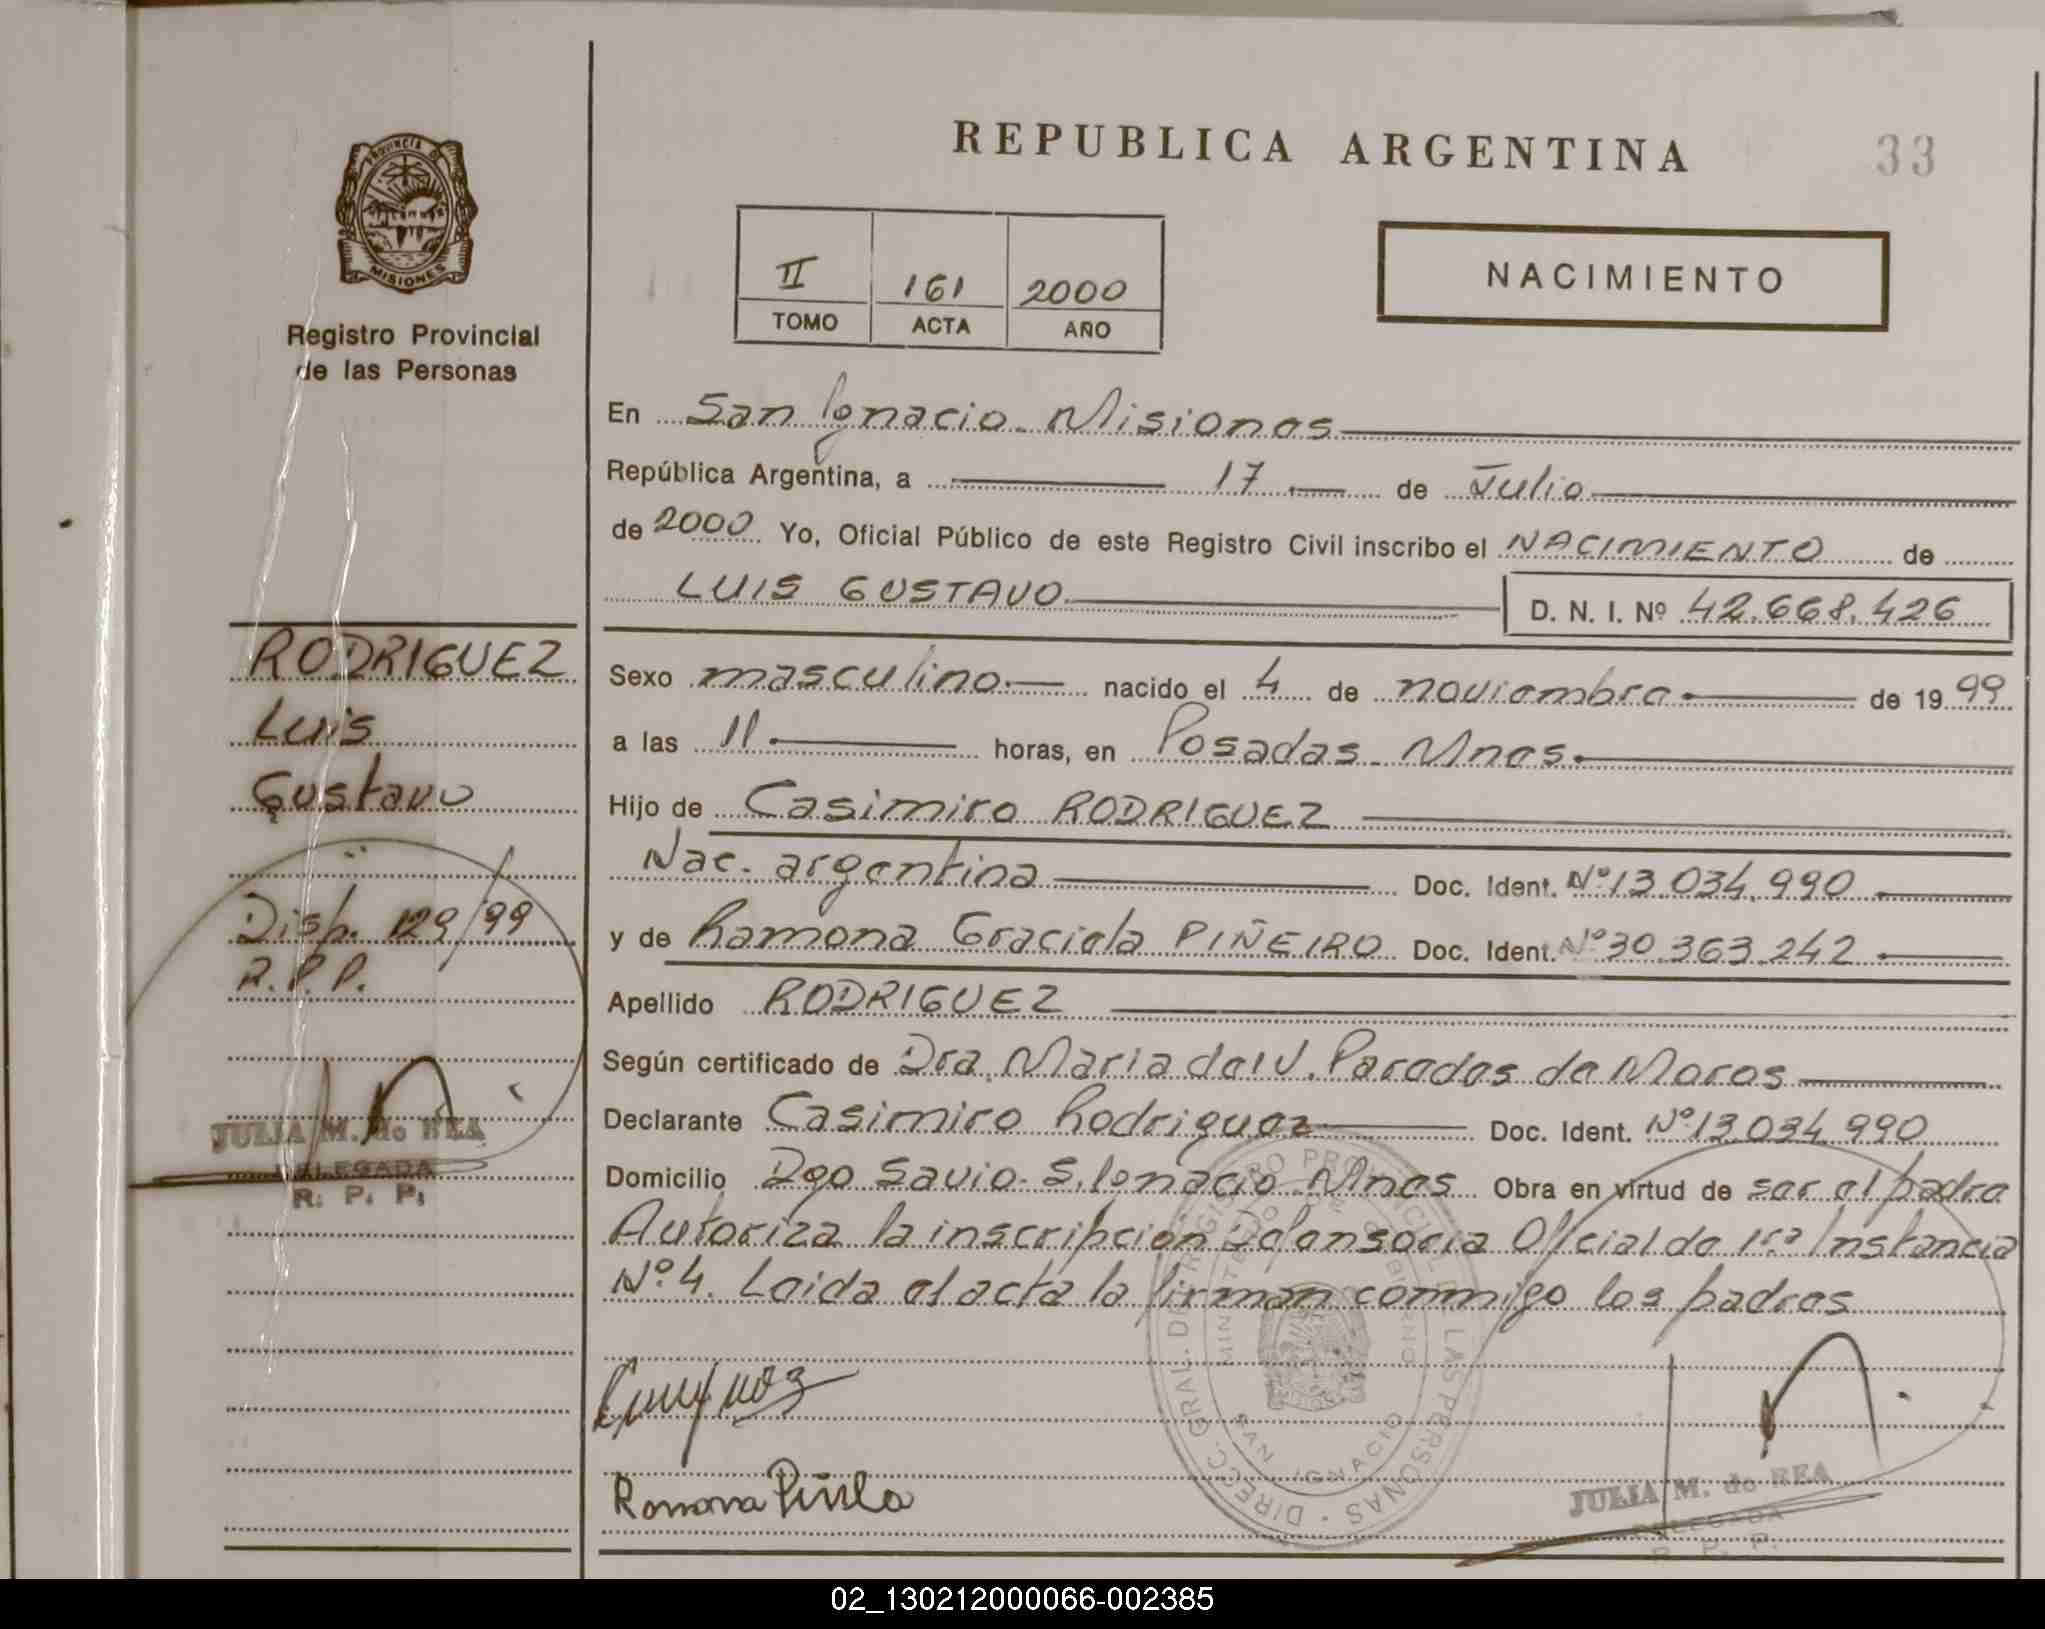 PROVINCIA DE
MISIONES
Registro Provincial
de las Personas
REPUBLICA ARGENTINA
33
II 161 2000
TOMO ACTA AÑO
NACIMIENTO
En San Ignacio - Misiones
República Argentina, a 17 de Julio
de 2000 Yo, Oficial Público de este Registro Civil inscribo el NACIMIENTO de
LUIS GUSTAVO D. N. I. Nº 42.668.426
Sexo masculino nacido el 4 de noviembre de 1999
a las 11 horas, en Posadas - Mnes.
Hijo de Casimiro RODRIGUEZ
Nac. argentina Doc. Ident. Nº 13.034.990
y de Ramona Graciela PIÑEIRO Doc. Ident. Nº 30.363.242
Apellido RODRIGUEZ
Según certificado de Dra. Maria del V. Paredes de Moros
Declarante Casimiro Rodriguez Doc. Ident. Nº 13.034.990
Domicilio Dgo Savio - S. Ignacio - Mnes Obra en virtud de ser el padre
Autoriza la inscripción Defensoria Oficial de 1ra Instancia
Nº 4. Leida el acta la firman conmigo los padres
Ramona
RODRIGUEZ
Luis
Gustavo
Disp. 129/99
R.P.P.
JULIA M. de REA
DELEGADA
R. P. P.
DIRECC. GRAL. DE REGISTRO PROVINCIAL DE LAS PERSONAS
MINISTERIO DE GOBIERNO
SAN IGNACIO
JULIA M. de REA
DELEGADA
R. P. P.
02_130212000066-002385